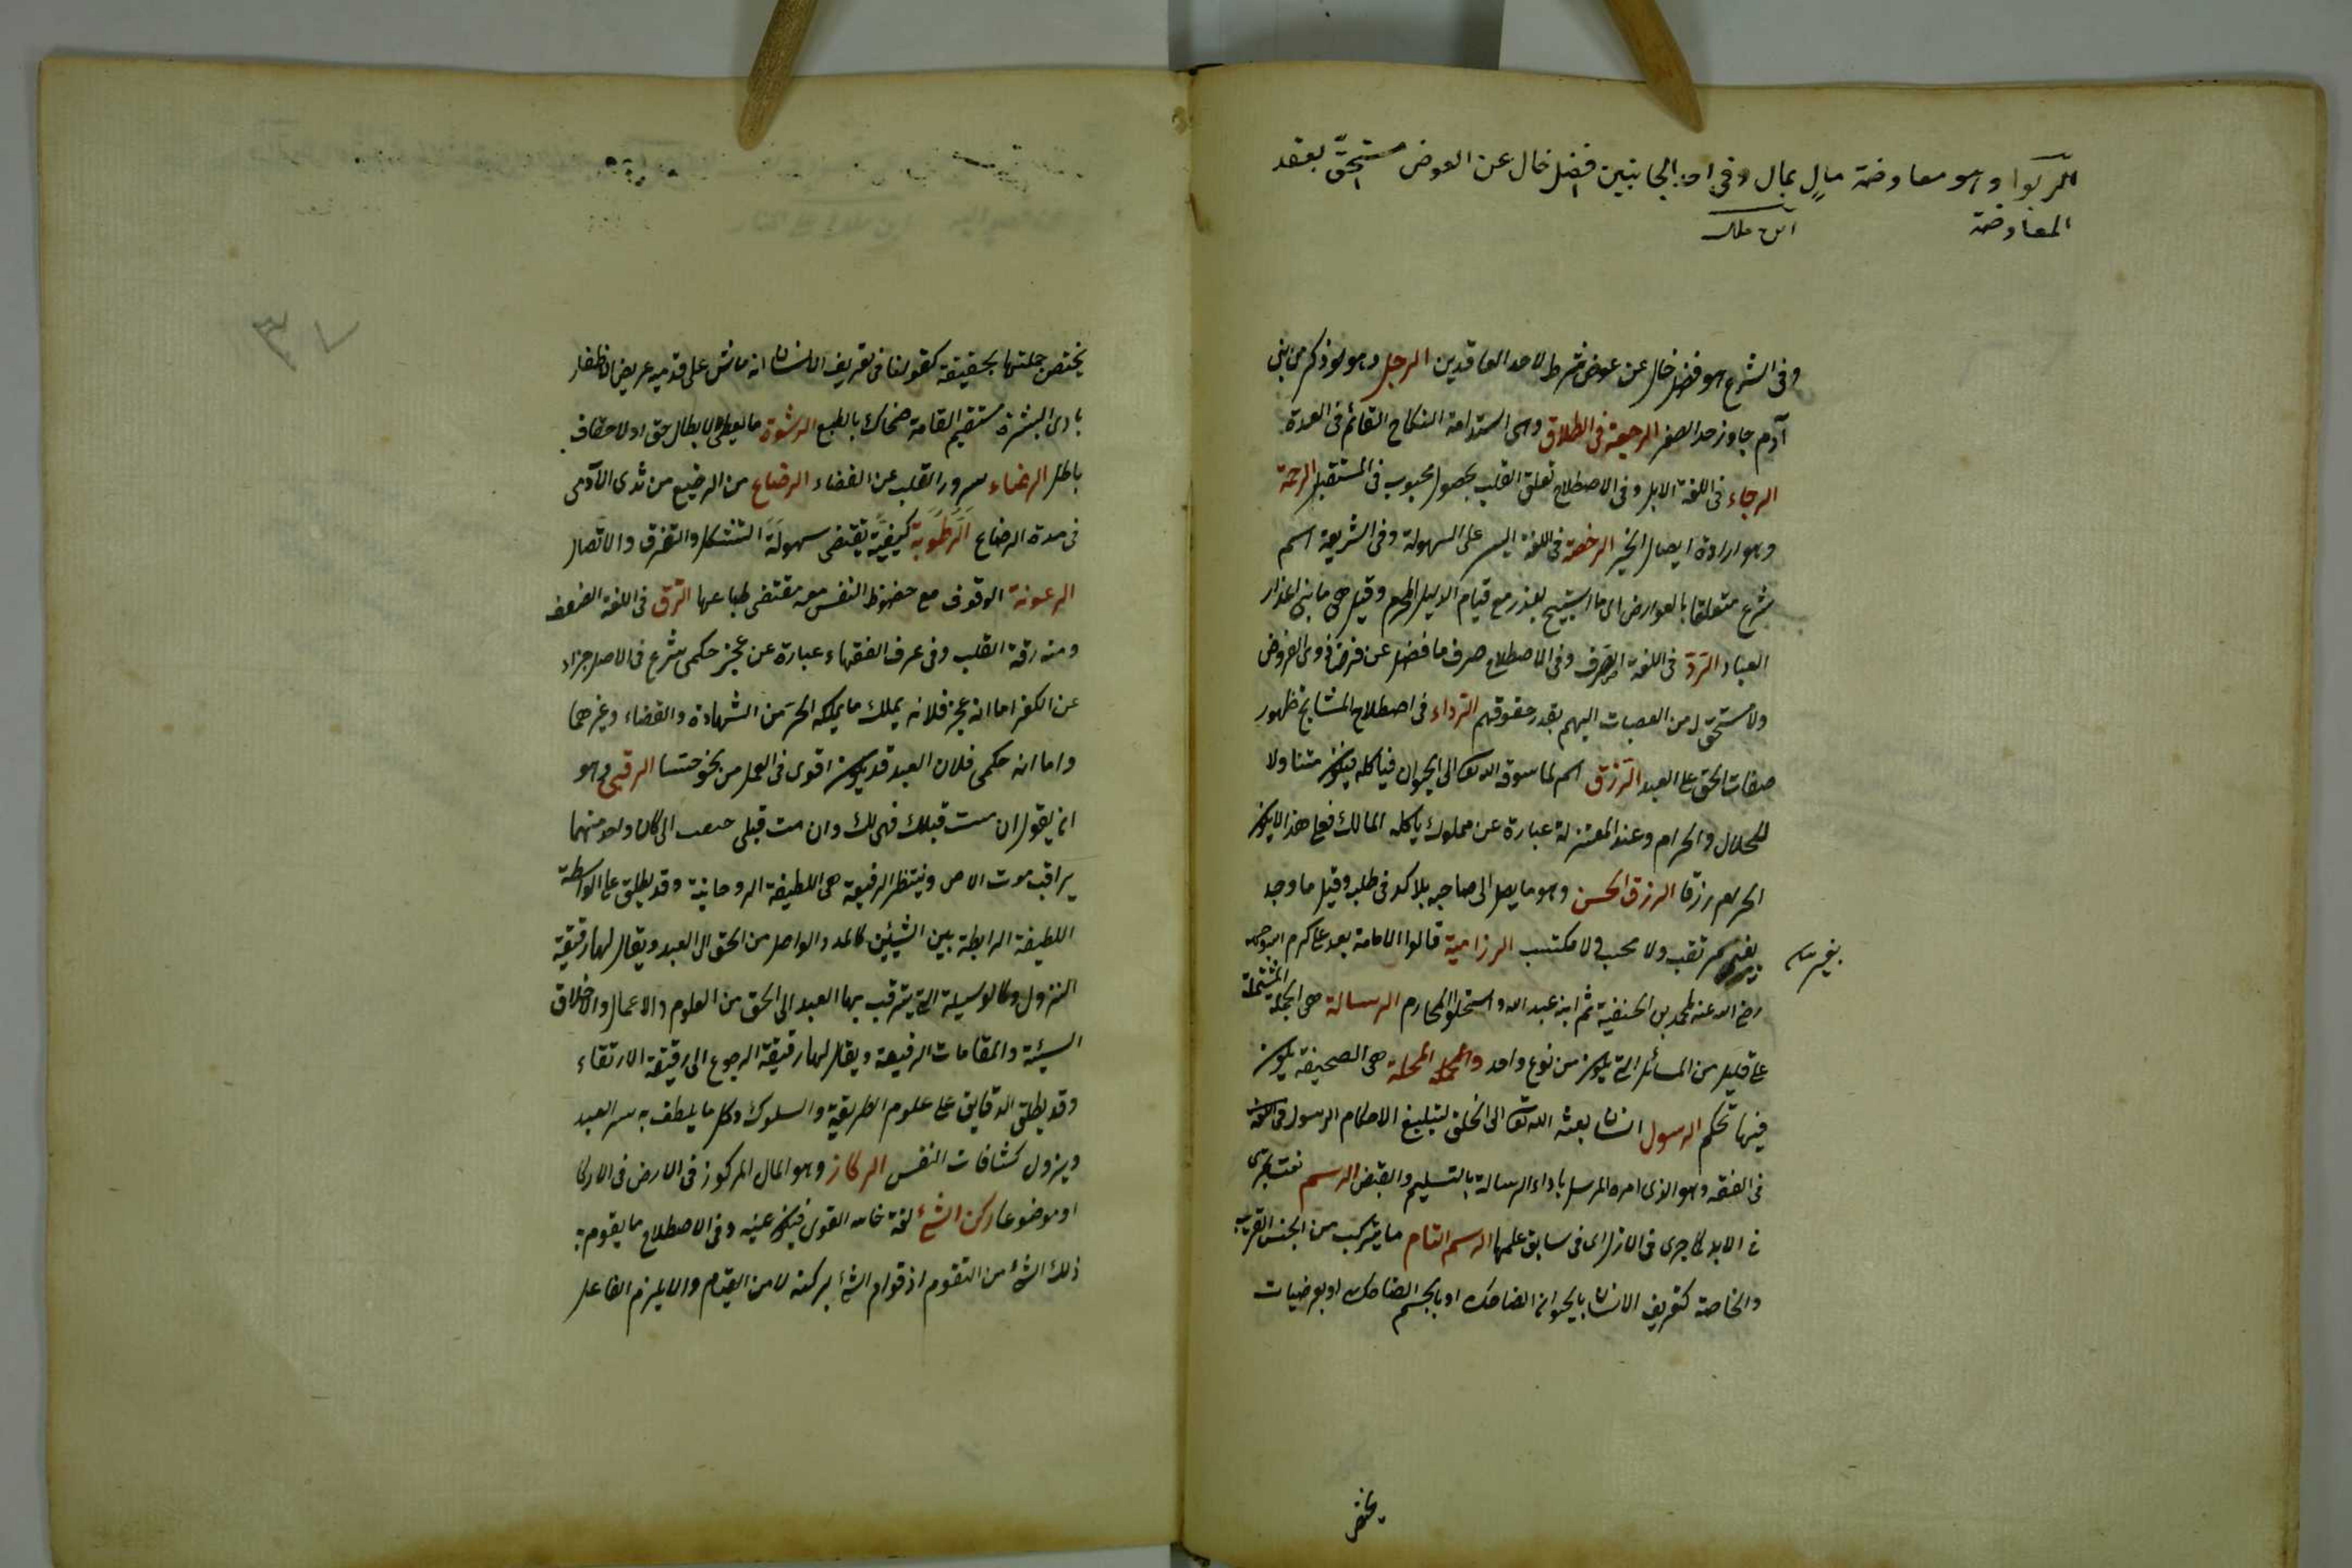 الربوا وهو معاوضة مال بمال وفى احد الجانبين فضل خال عن العوض مستحق بعقد
المعاوضة ابن ملك
وفى الشرع هو فضل خال عن عوض شرط لاحد العاقدين الرجل وهو ذكر من بنى
آدم جاوز حد الصغر الرجعة فى الطلاق وهى استدامة النكاح القائم فى العدة
الرجاء فى اللغة الامل وفى الاصطلاح تعلق القلب بحصول محبوب فى المستقبل الرحمة
وهو ارادة ايصال الخير الرخصة فى اللغة اليسر على السهولة وفى الشريعة اسم
شرع متعلقا بالعوارض اى ما استبيح بعذر مع قيام الدليل المحرم وقيل هى ما بنى اعذار
العباد الرد فى اللغة الصرف وفى الاصطلاح صرف ما فضل عن فرض ذوى الفروض
ولا مستحق له من العصبات اليهم بقدر حقوقهم الرداء فى اصطلاح المشايخ ظهور
صفات الحق على العبد الرزق اسم لما يسوقه الله تعالى الى الحيوان فيأكله فيكون متناولا
للحلال والحرام وعند المعتزلة عبارة عن مملوك يأكله المالك فعلى هذا لا يكون
الحرام رزقا الرزق الحسن وهو ما يصل الى صاحبه بلا كد فى طلبه وقيل ما وجد
بغير مرتقب ولا محتسب ولا مكتسب الرزامية قالوا الامامة بعد على كرم الله وجهه
رضى الله عنه لمحمد بن الحنفية ثم ابنه عبد الله واستحلوا المحارم الرسالة هى المجلة المشتملة
على قليل من المسائل التى تكون من نوع واحد والمجلة هى الصحيفة يكون
فيها الحكم الرسول انسان بعثه الله تعالى الى الخلق لتبليغ الاحكام الرسول فى اللغة
فى الفقه وهو الذى امره المرسل باداء الرسالة بالتسليم والقبض الرسم نعت يجرى
فى الابد بما جرى فى الازل اى فى سابق علمه الرسم التام ما يتركب من الجنس القريب
والخاصة كتعريف الانسان بالحيوان الضاحك او بالجسم الضاحك او بعرضيات
يختص
٣٧
يختص جملتها بحقيقة كقولنا فى تعريف الانسان انه ماش على قدميه عريض الاظفار
بادى البشرة مستقيم القامة ضحاك بالطبع الرشوة ما يعطى لابطال حق او لاحقاق
باطل الرضاء سرور القلب عن القضاء الرضاع من الرضيع من ثدى الآدمى
فى مدة الرضاع الرطوبة كيفية تقتضى سهولة التشكل والتفرق والاتصال
الرعونة الوقوف مع حضوظ النفس مع مقتضى طباعها الرق فى اللغة الضعف
ومنه رقة القلب وفى عرف الفقهاء عبارة عن عجز حكمى شرع فى الاصل جزاء
عن الكفر اما انه عجز فلانه يملك ما يملكه الحر من الشهادة والقضاء وغيرهما
واما انه حكمى فلان العبد قد يكون اقوى فى العمل من الحر حسا الرقبى وهو
ان يقول ان مت قبلك فهى لك وان مت قبلى رجعت الى كان كل واحد منهما
يراقب موت الاخر وينتظر الرقيقة هى اللطيفة الروحانية وقد يطلق على الواسطة
اللطيفة الرابطة بين الشيئين كالمدد الواصل من الحق الى العبد ويقال لها رقيقة
النزول وكالوسيلة التى يتقرب بها العبد الى الحق من العلوم والاعمال والاخلاق
السيئة والمقامات الرفيعة ويقال لها رقيقة الرجوع الى رقيقة الارتقاء
وقد يطلق الرقايق على علوم الطريقة والسلوك وكل ما يلطف به سر العبد
ويزول كثافات النفس الركاز وهو المال المركوز فى الارض
او موضوعا ركن الشئ لغة جانبه القوى فيكون عينه وفى الاصطلاح ما يقوم به
ذلك الشئ من التقوم اذ قوام الشئ بركنه لا من القيام والا يلزم الفاعل